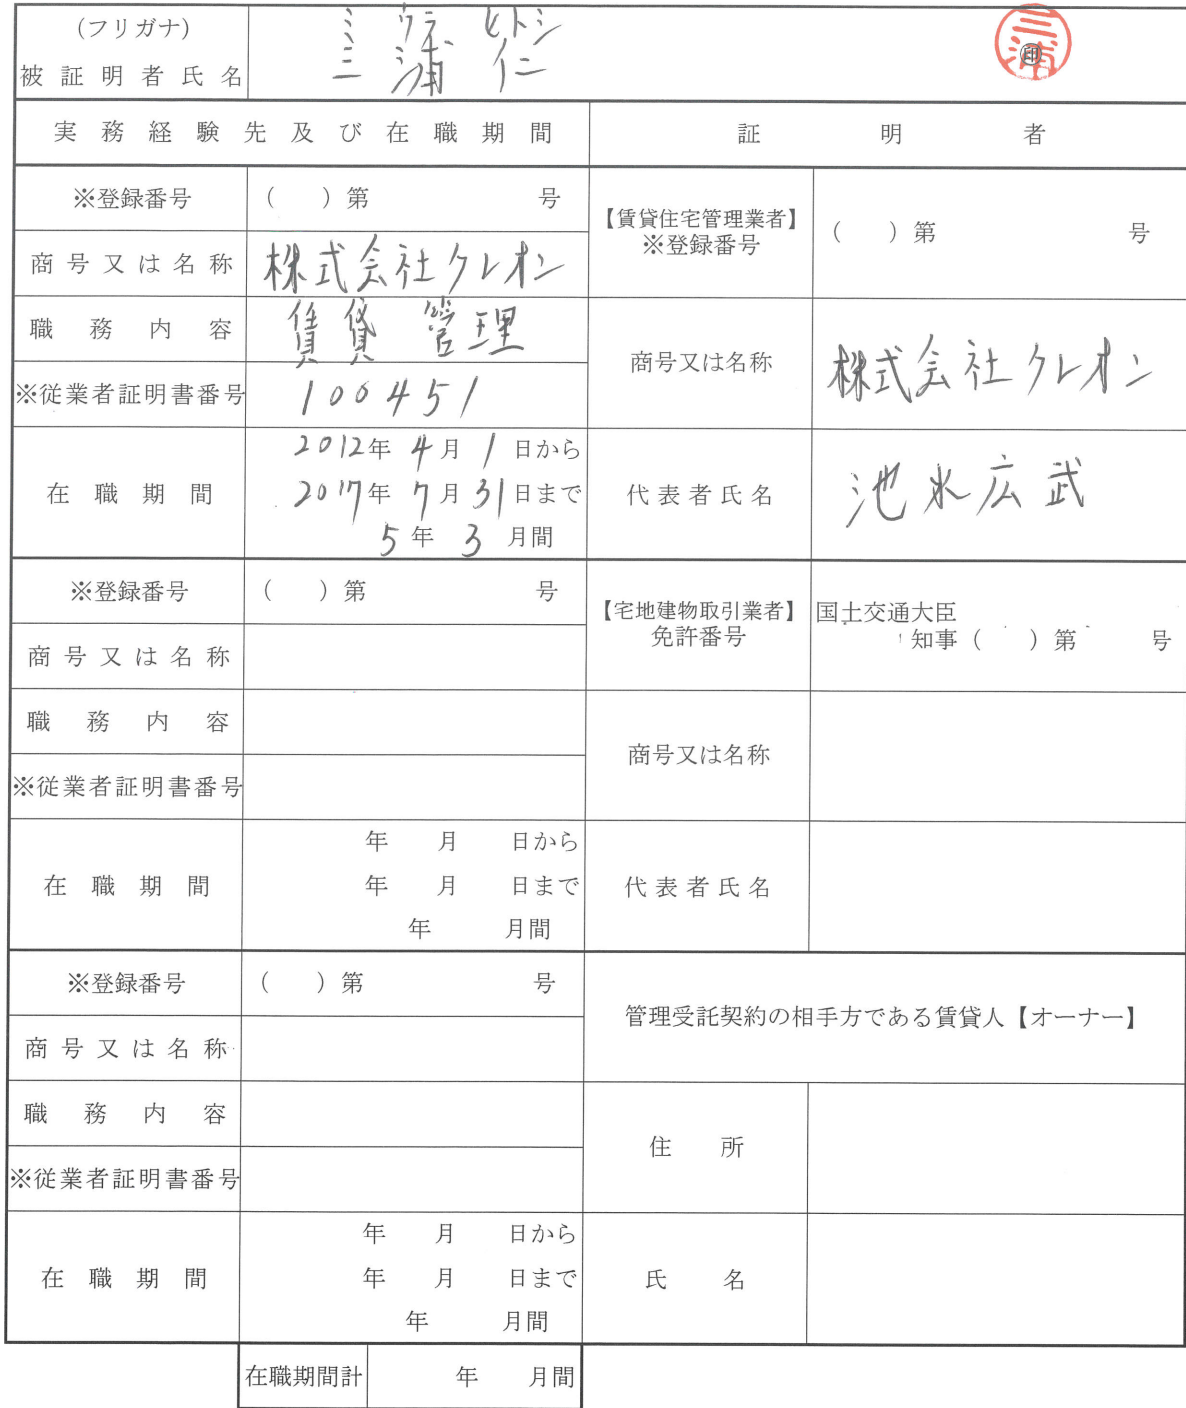 (フリガナ) ミ ウラ ヒトシ
被証明者氏名 三浦 仁 ㊞ 三浦
実務経験先及び在職期間 証明者
※登録番号 ( )第 号
商号又は名称 株式会社クレオン
職務内容 賃貸 管理
※従業者証明書番号 100451
在職期間 2012年 4月 1日から
2017年 7月 31日まで
5年 3月間
【賃貸住宅管理業者】
※登録番号 ( )第 号
商号又は名称 株式会社クレオン
代表者氏名 池水広武
※登録番号 ( )第 号
商号又は名称
職務内容
※従業者証明書番号
在職期間 年 月 日から
年 月 日まで
年 月間
【宅地建物取引業者】
免許番号 国土交通大臣
知事( )第 号
商号又は名称
代表者氏名
※登録番号 ( )第 号
商号又は名称
職務内容
※従業者証明書番号
在職期間 年 月 日から
年 月 日まで
年 月間
管理受託契約の相手方である賃貸人【オーナー】
住所
氏名
在職期間計 年 月間